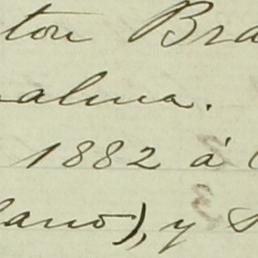 ton Bra
alma.
1882 á
lano), y